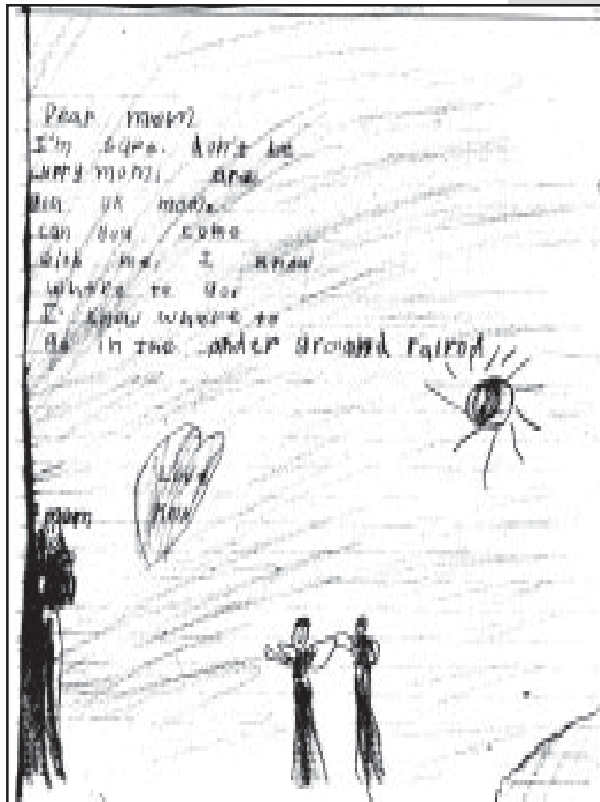 Dear mom
I'm sure. don't be
worry mom. are
you ok mom.
can you come
with me. I know
where to go.
I know where to
go in the under ground railrod
Love
mom